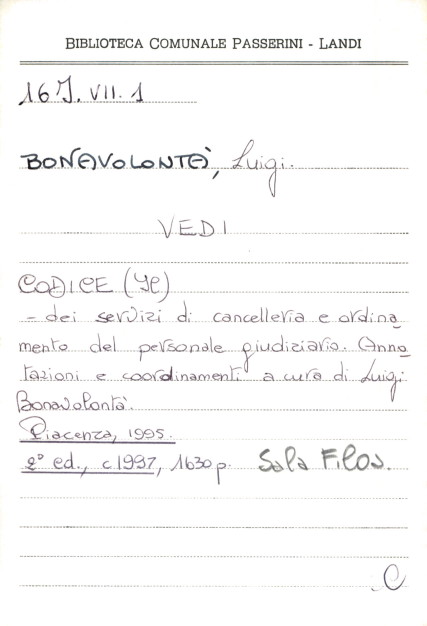 BIBLIOTECA COMUNALE PASSERINI - LANDI
16 J. VII. 1
BONAVOLONTÀ, Luigi.
VEDI
CODICE (Il)
- dei servizi di cancelleria e ordina
mento del personale giudiziario. Anno
tazioni e coordinamenti a cura di Luigi
Bonavolontà.
Piacenza, 1995.
2° ed., c1997, 1630 p. Sala Filos.
C